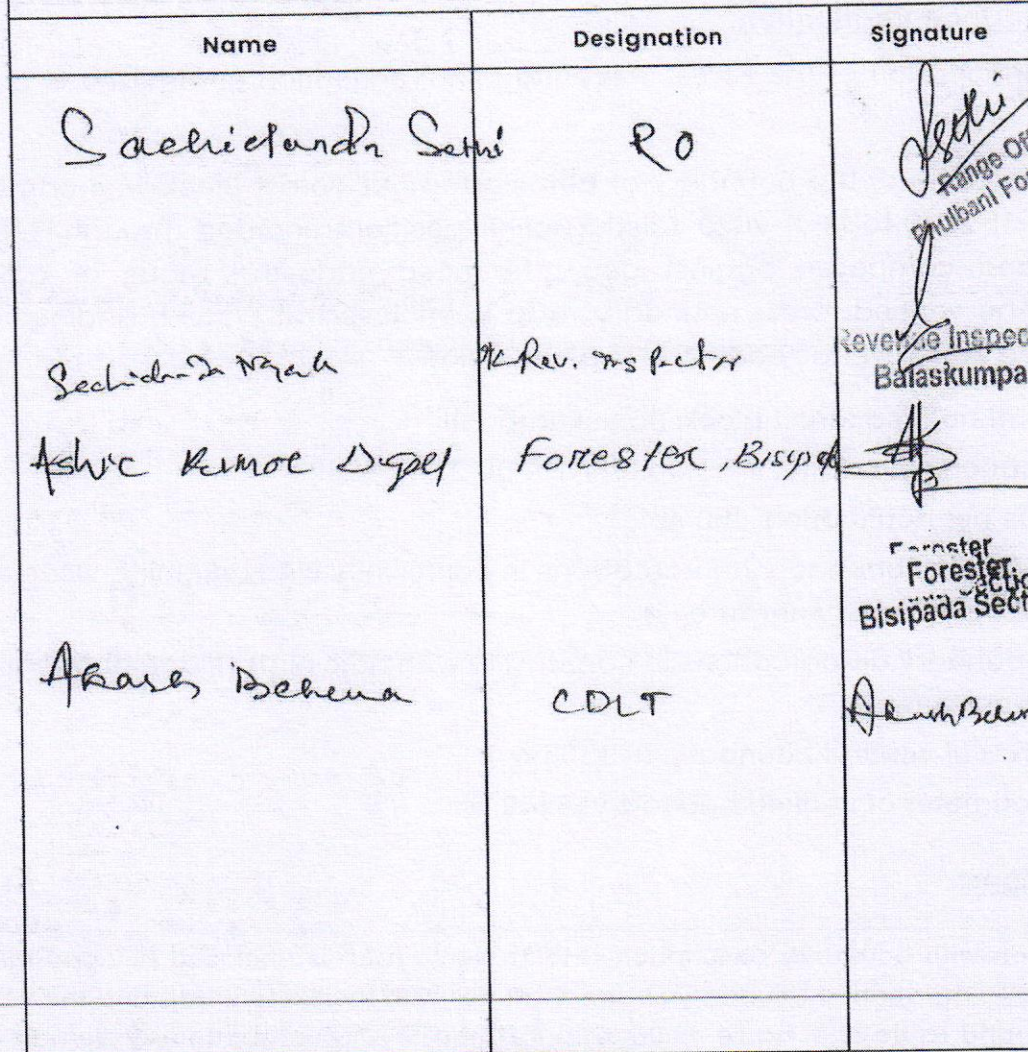 Name Designation Signature
Sachidanda Sethi RO Sethi
Range Off
Phulbani For
Sachidanda Nayak Rev. Inspector
Revenue Inspec
Balaskumpa
Ashic Kumar Digal Forester, Bisipada
Forester
Forester
Bisipada Sect
Akash Behera CDLT Akash Beher